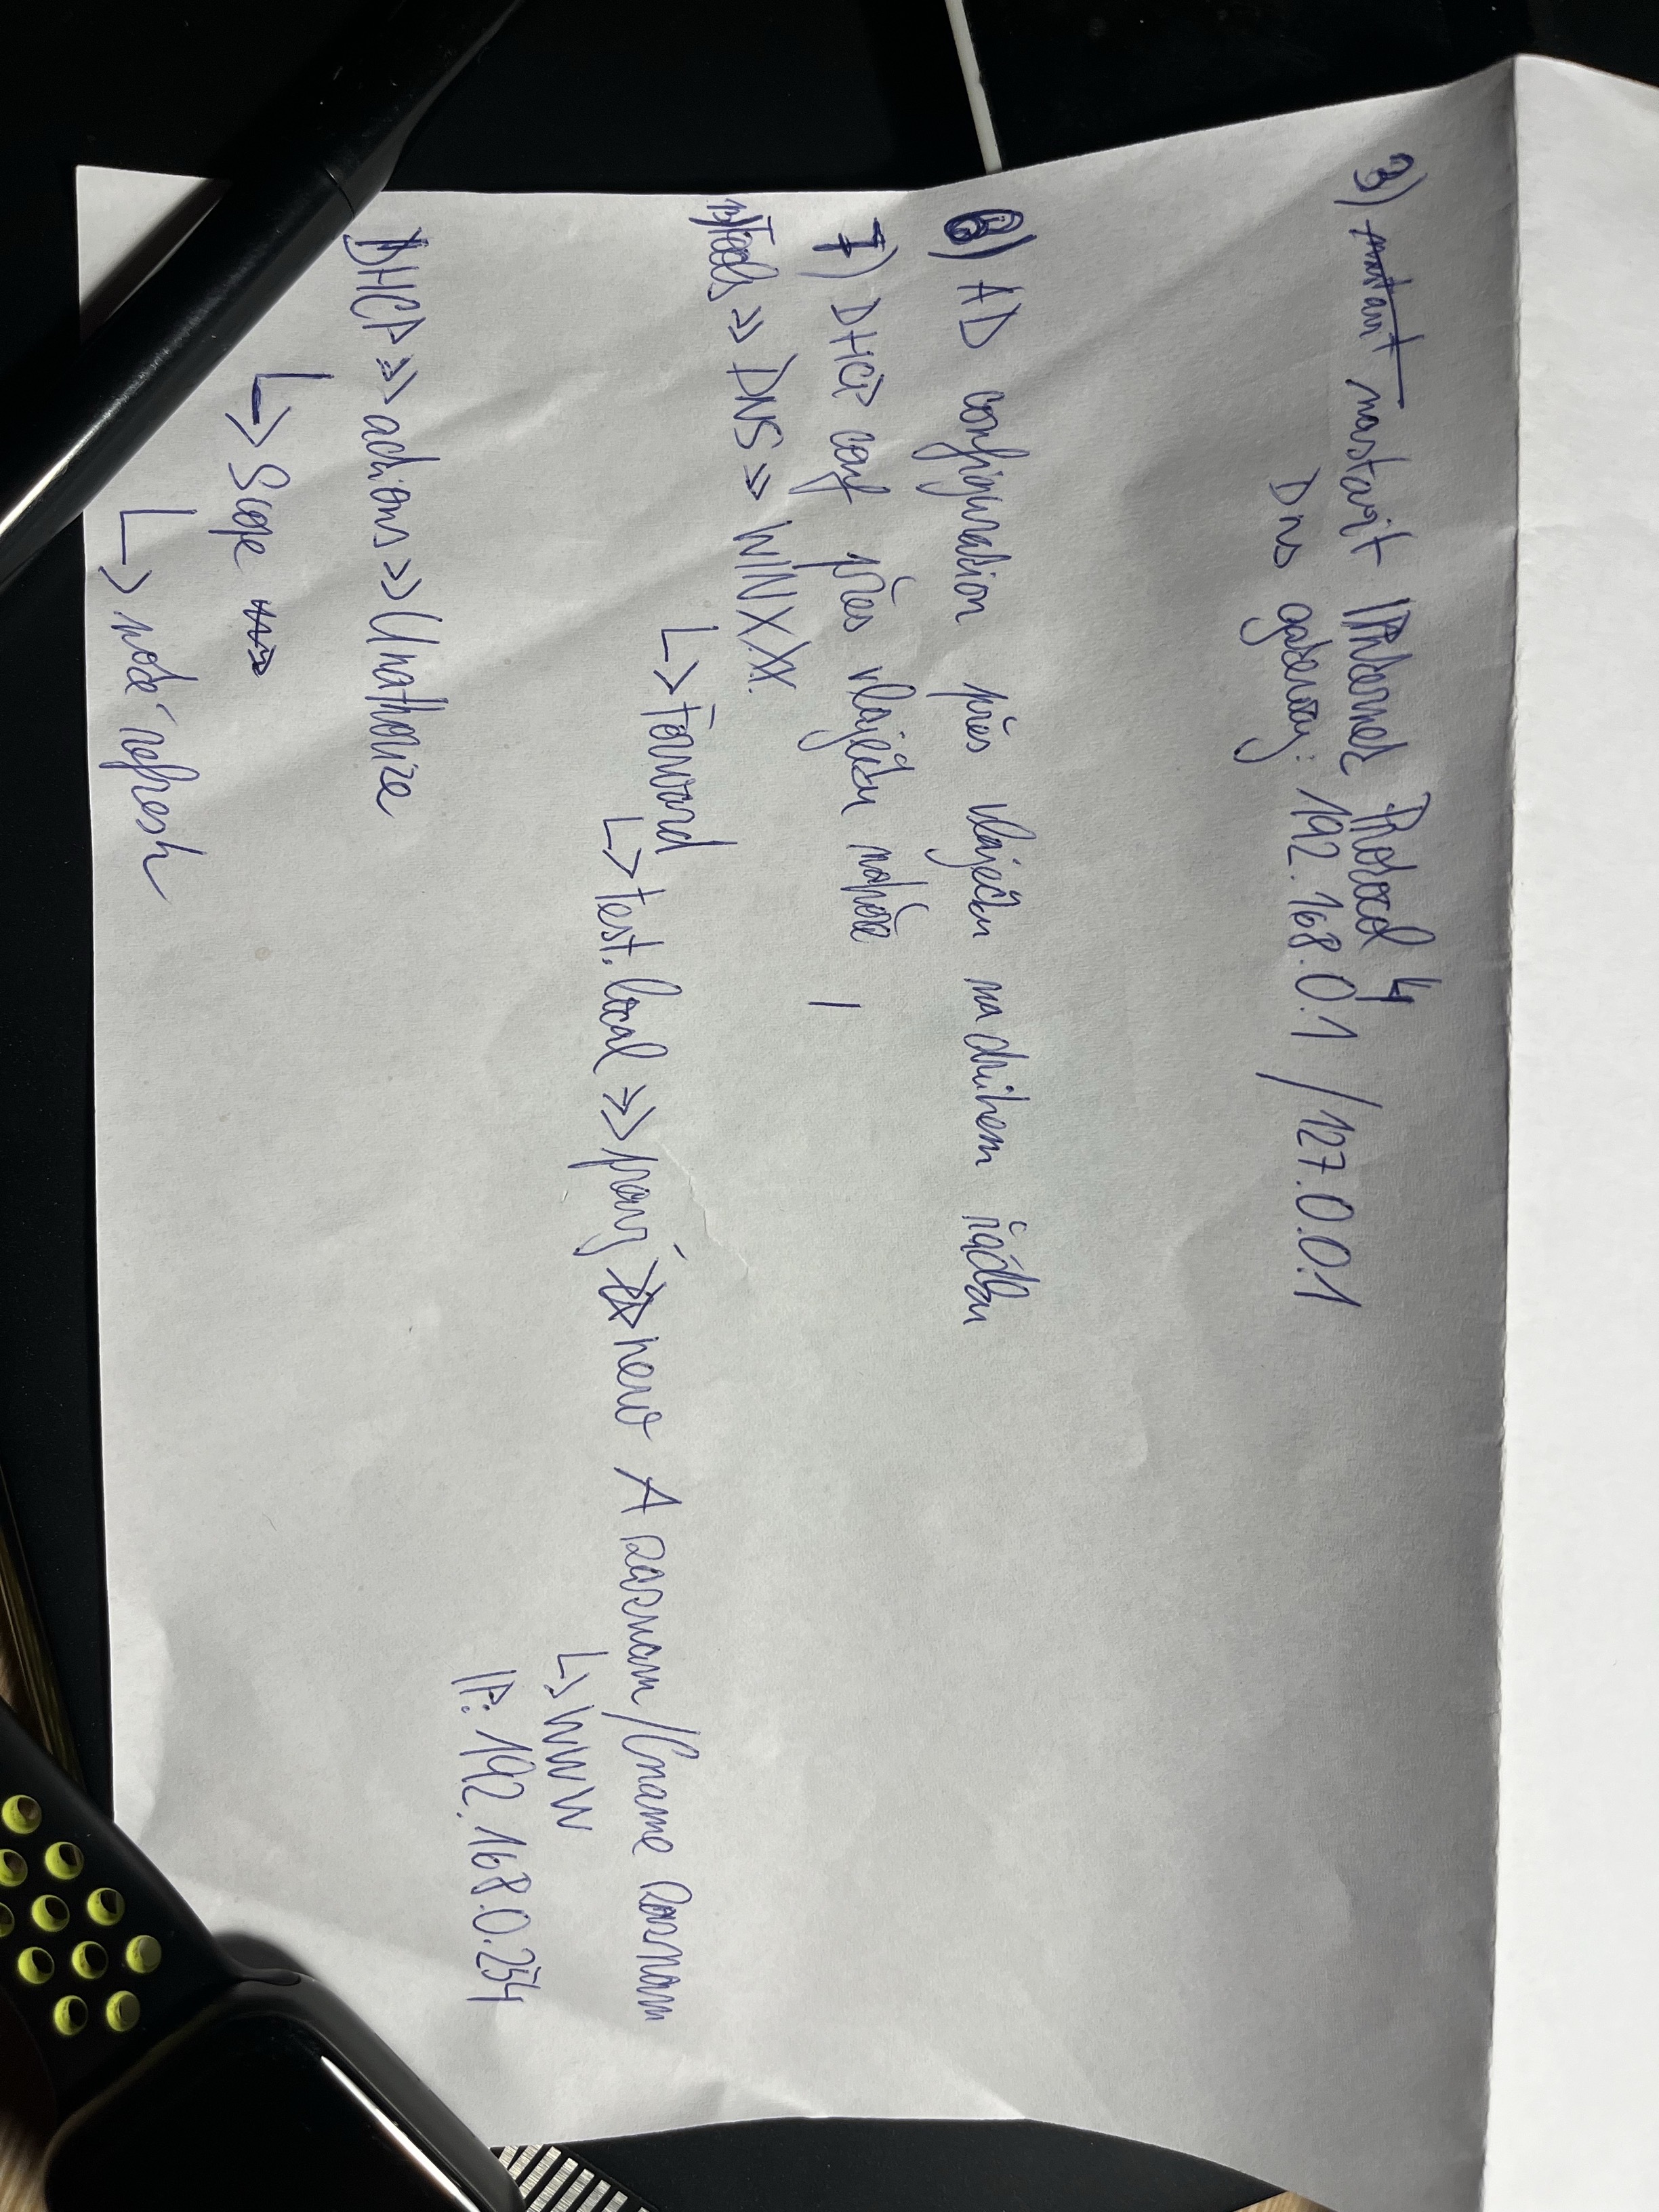 3) nastavit Internet Protocol 4
Dns gateway: 192.168.0.1 / 127.0.0.1
6) AD configuration přes vlaječku na druhem řádku
7) DHCP conf přes vlaječku nahoře
Tools >> DNS >> WINXXX.
↳ Forward
↳ test.local >> pravý new A zaznam/Cname zaznam
↳ WWW
IP: 192.168.0.254
DHCP >> actions >> Unathorize
↳ Scope
↳ node refresh